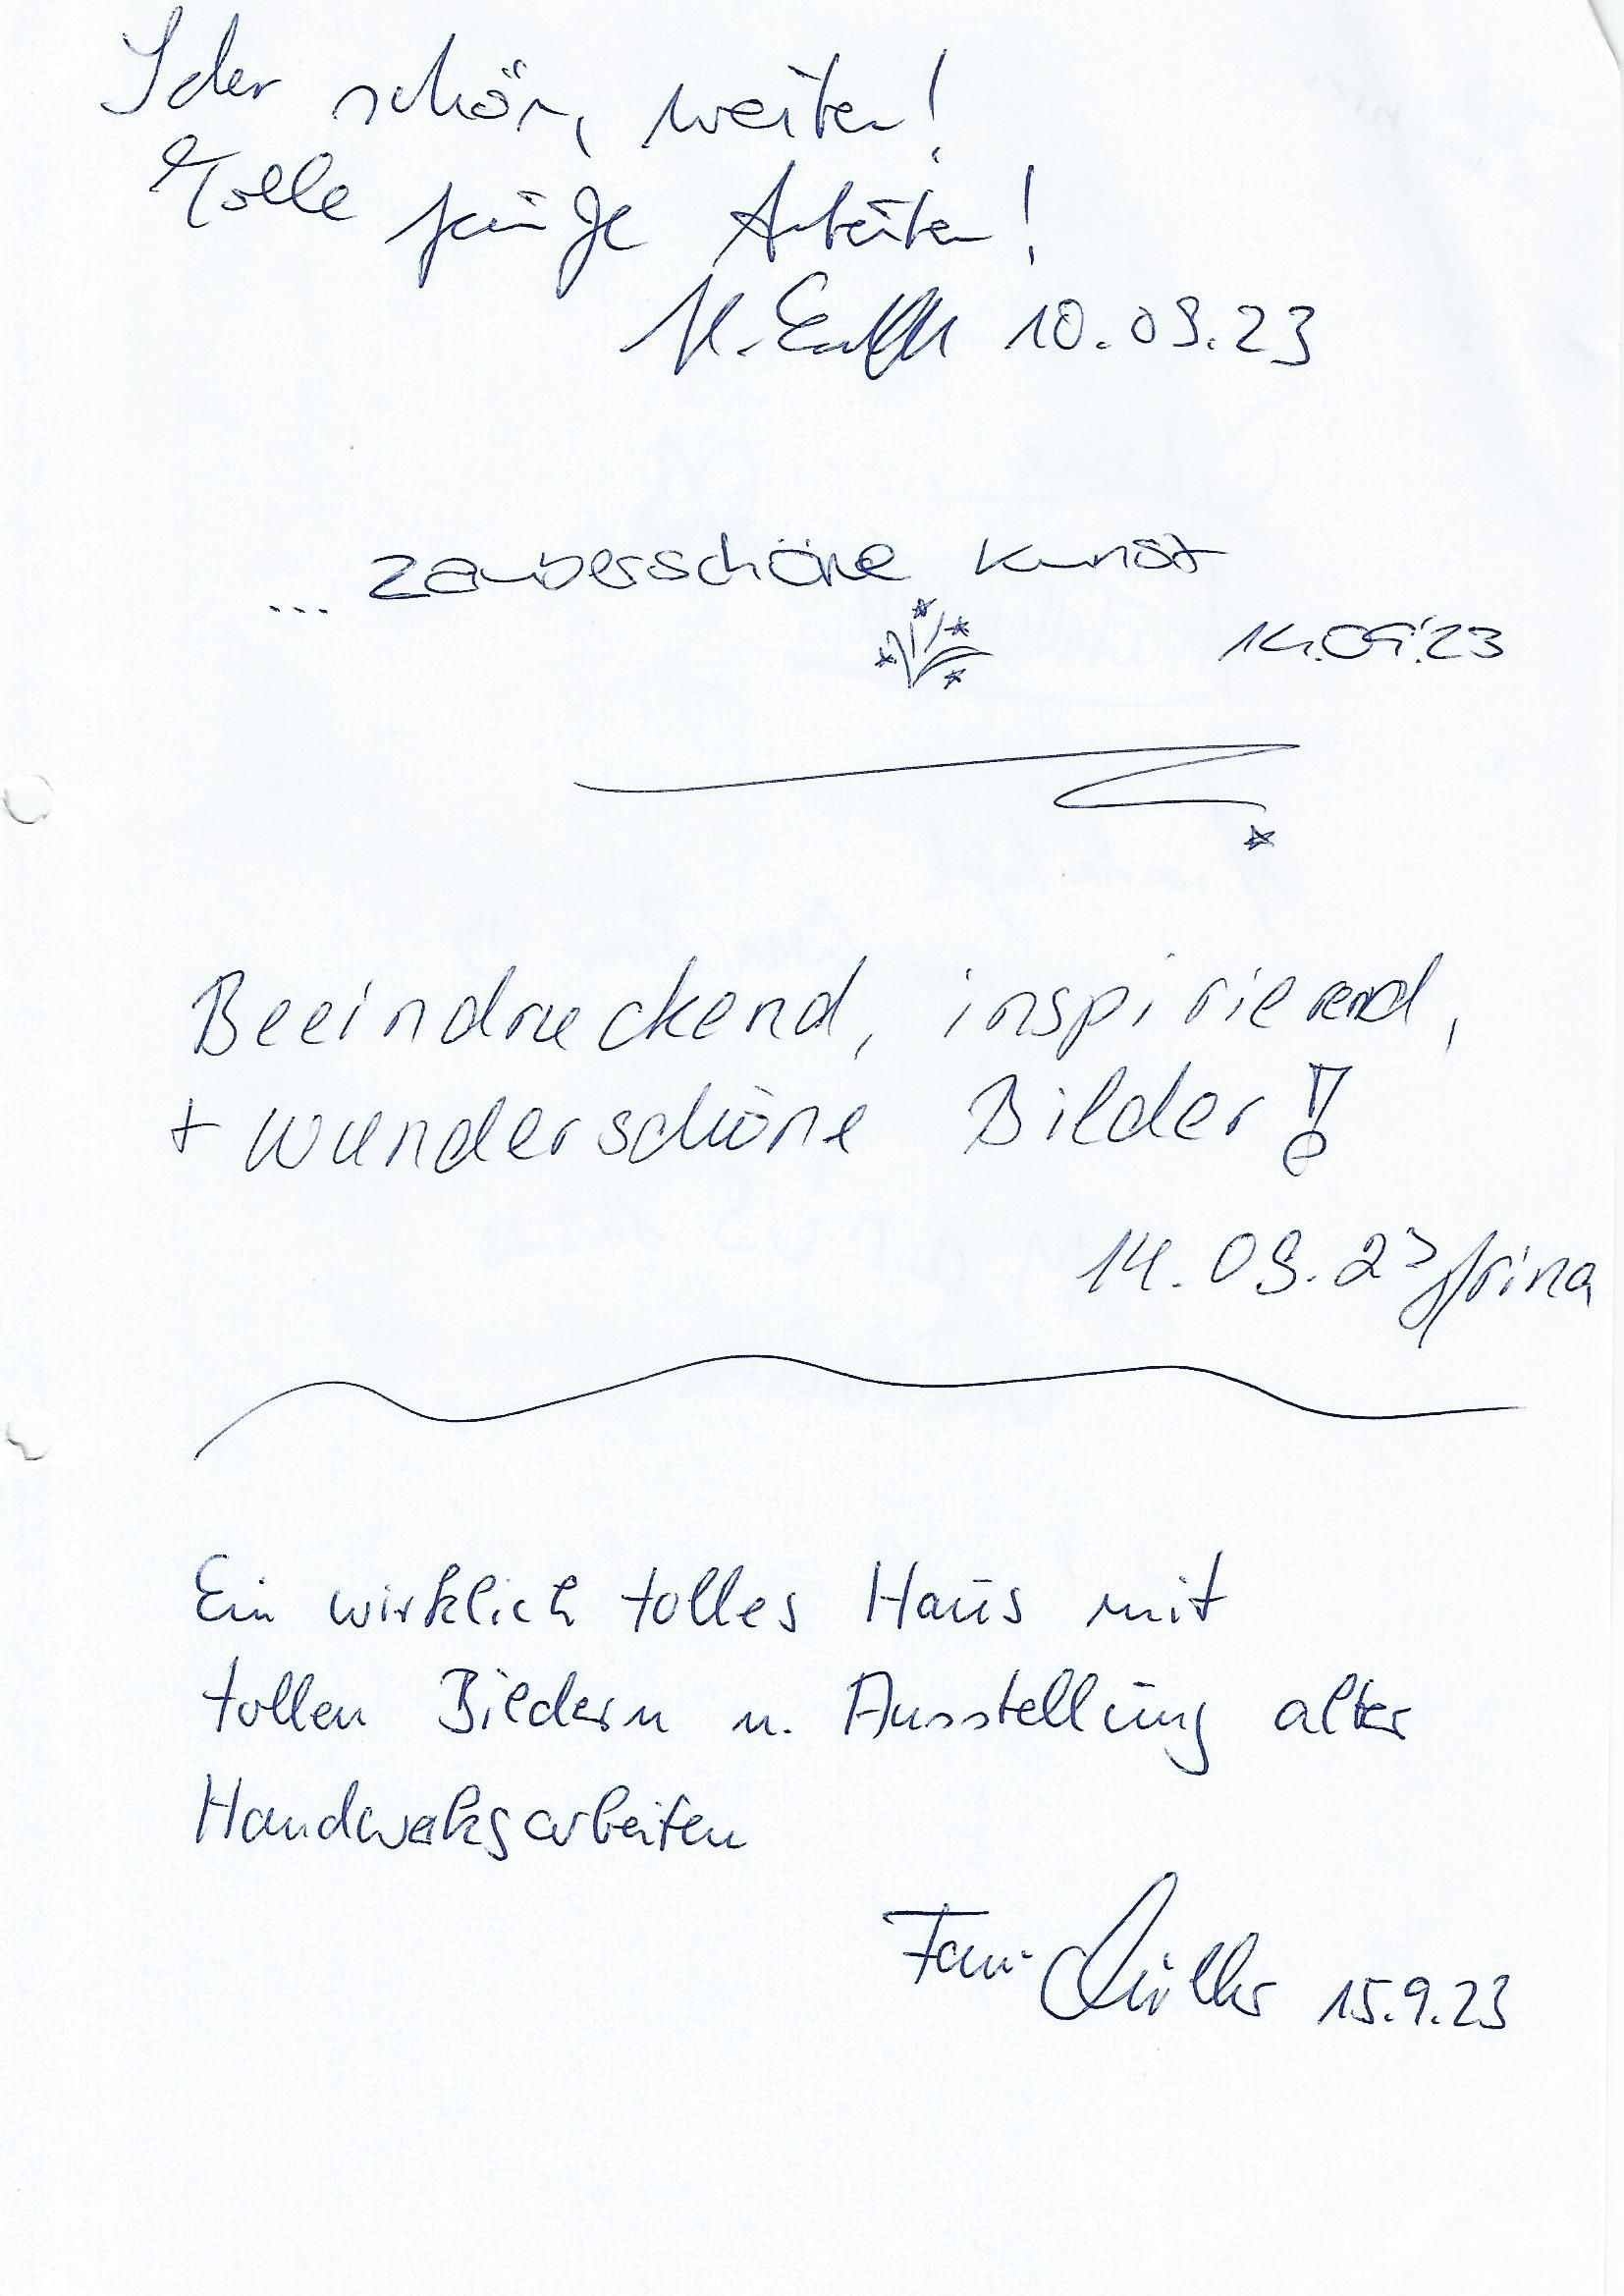 schön, weiter!
Tolle
Arbeiten!
10.09.23
... zauberschöne Kunst
14.09.'23
Beeindruckend, inspirierend,
+ wunderschöne Bilder!
14.09.23 Irina
Ein wirklich tolles Haus mit
tollen Bildern u. Ausstellung alter
Handwerksarbeiten
Fam. Müller 15.9.23